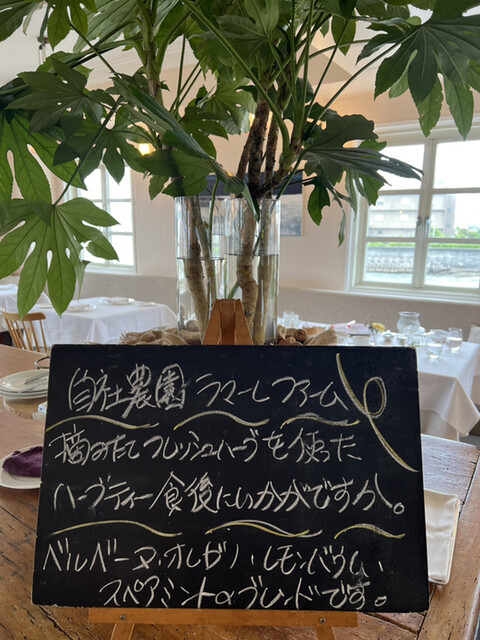 自社農園 ラマーレファーム
摘みたてフレッシュハーブを使った
ハーブティー食後にいかがですか。
ベルベーヌ・オレガノ・レモンバウム・
スペアミントのブレンドです。